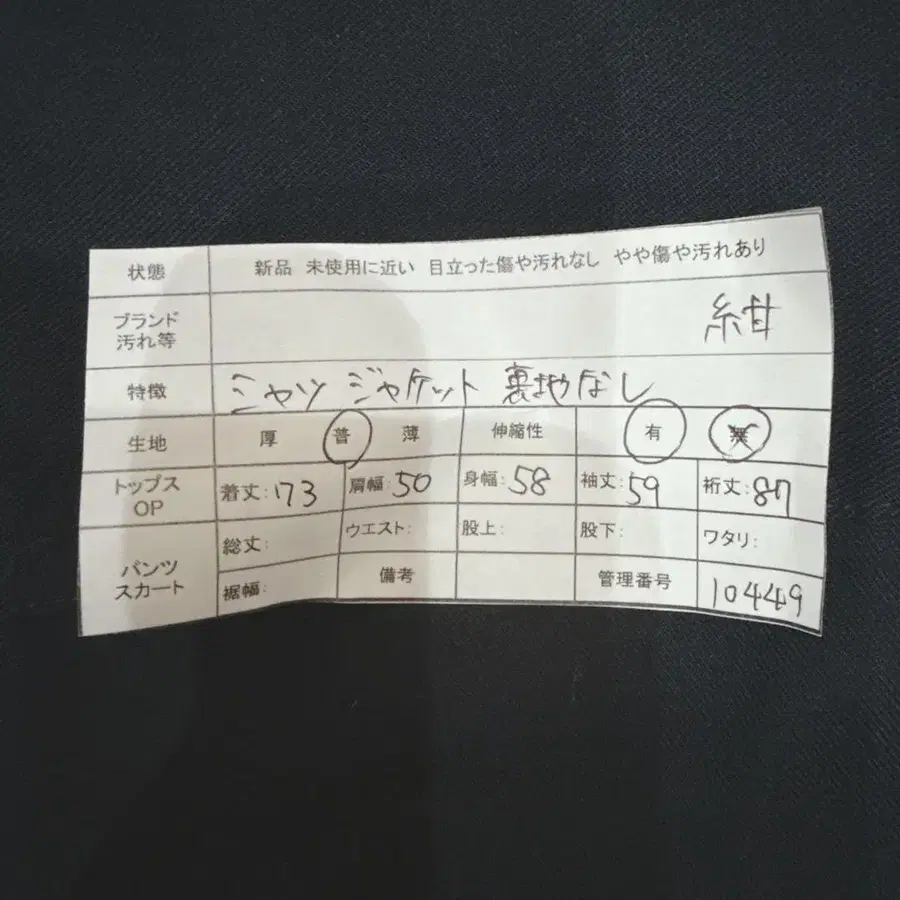 状態 新品 未使用に近い 目立った傷や汚れなし やや傷や汚れあり
ブランド
汚れ等 紺
特徴 シャツ ジャケット 裏地なし
生地 厚 普 薄 伸縮性 有 無
トップス
OP 着丈:73 肩幅:50 身幅:58 袖丈:59 裄丈:87
パンツ
スカート 総丈: ウエスト: 股上: 股下: ワタリ:
裾幅: 備考 管理番号 10449